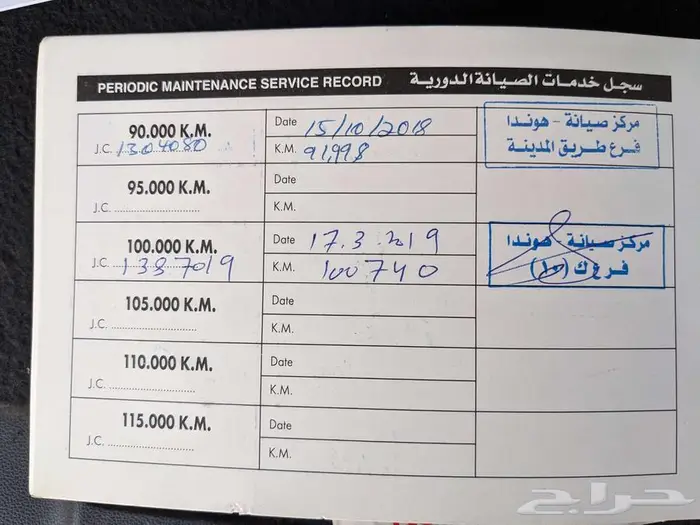 PERIODIC MAINTENANCE SERVICE RECORD سجل خدمات الصيانة الدورية
90.000 K.M.
J.C. 1304080
Date 15/10/2018
K.M. 91,998
مركز صيانة - هوندا
فرع طريق المدينة
95.000 K.M.
J.C.
Date
K.M.
100.000 K.M.
J.C. 1387019
Date 17.3.2019
K.M. 100740
مركز صيانة - هوندا
فرع ك (١٠)
105.000 K.M.
J.C.
Date
K.M.
110.000 K.M.
J.C.
Date
K.M.
115.000 K.M.
J.C.
Date
K.M.
حراج